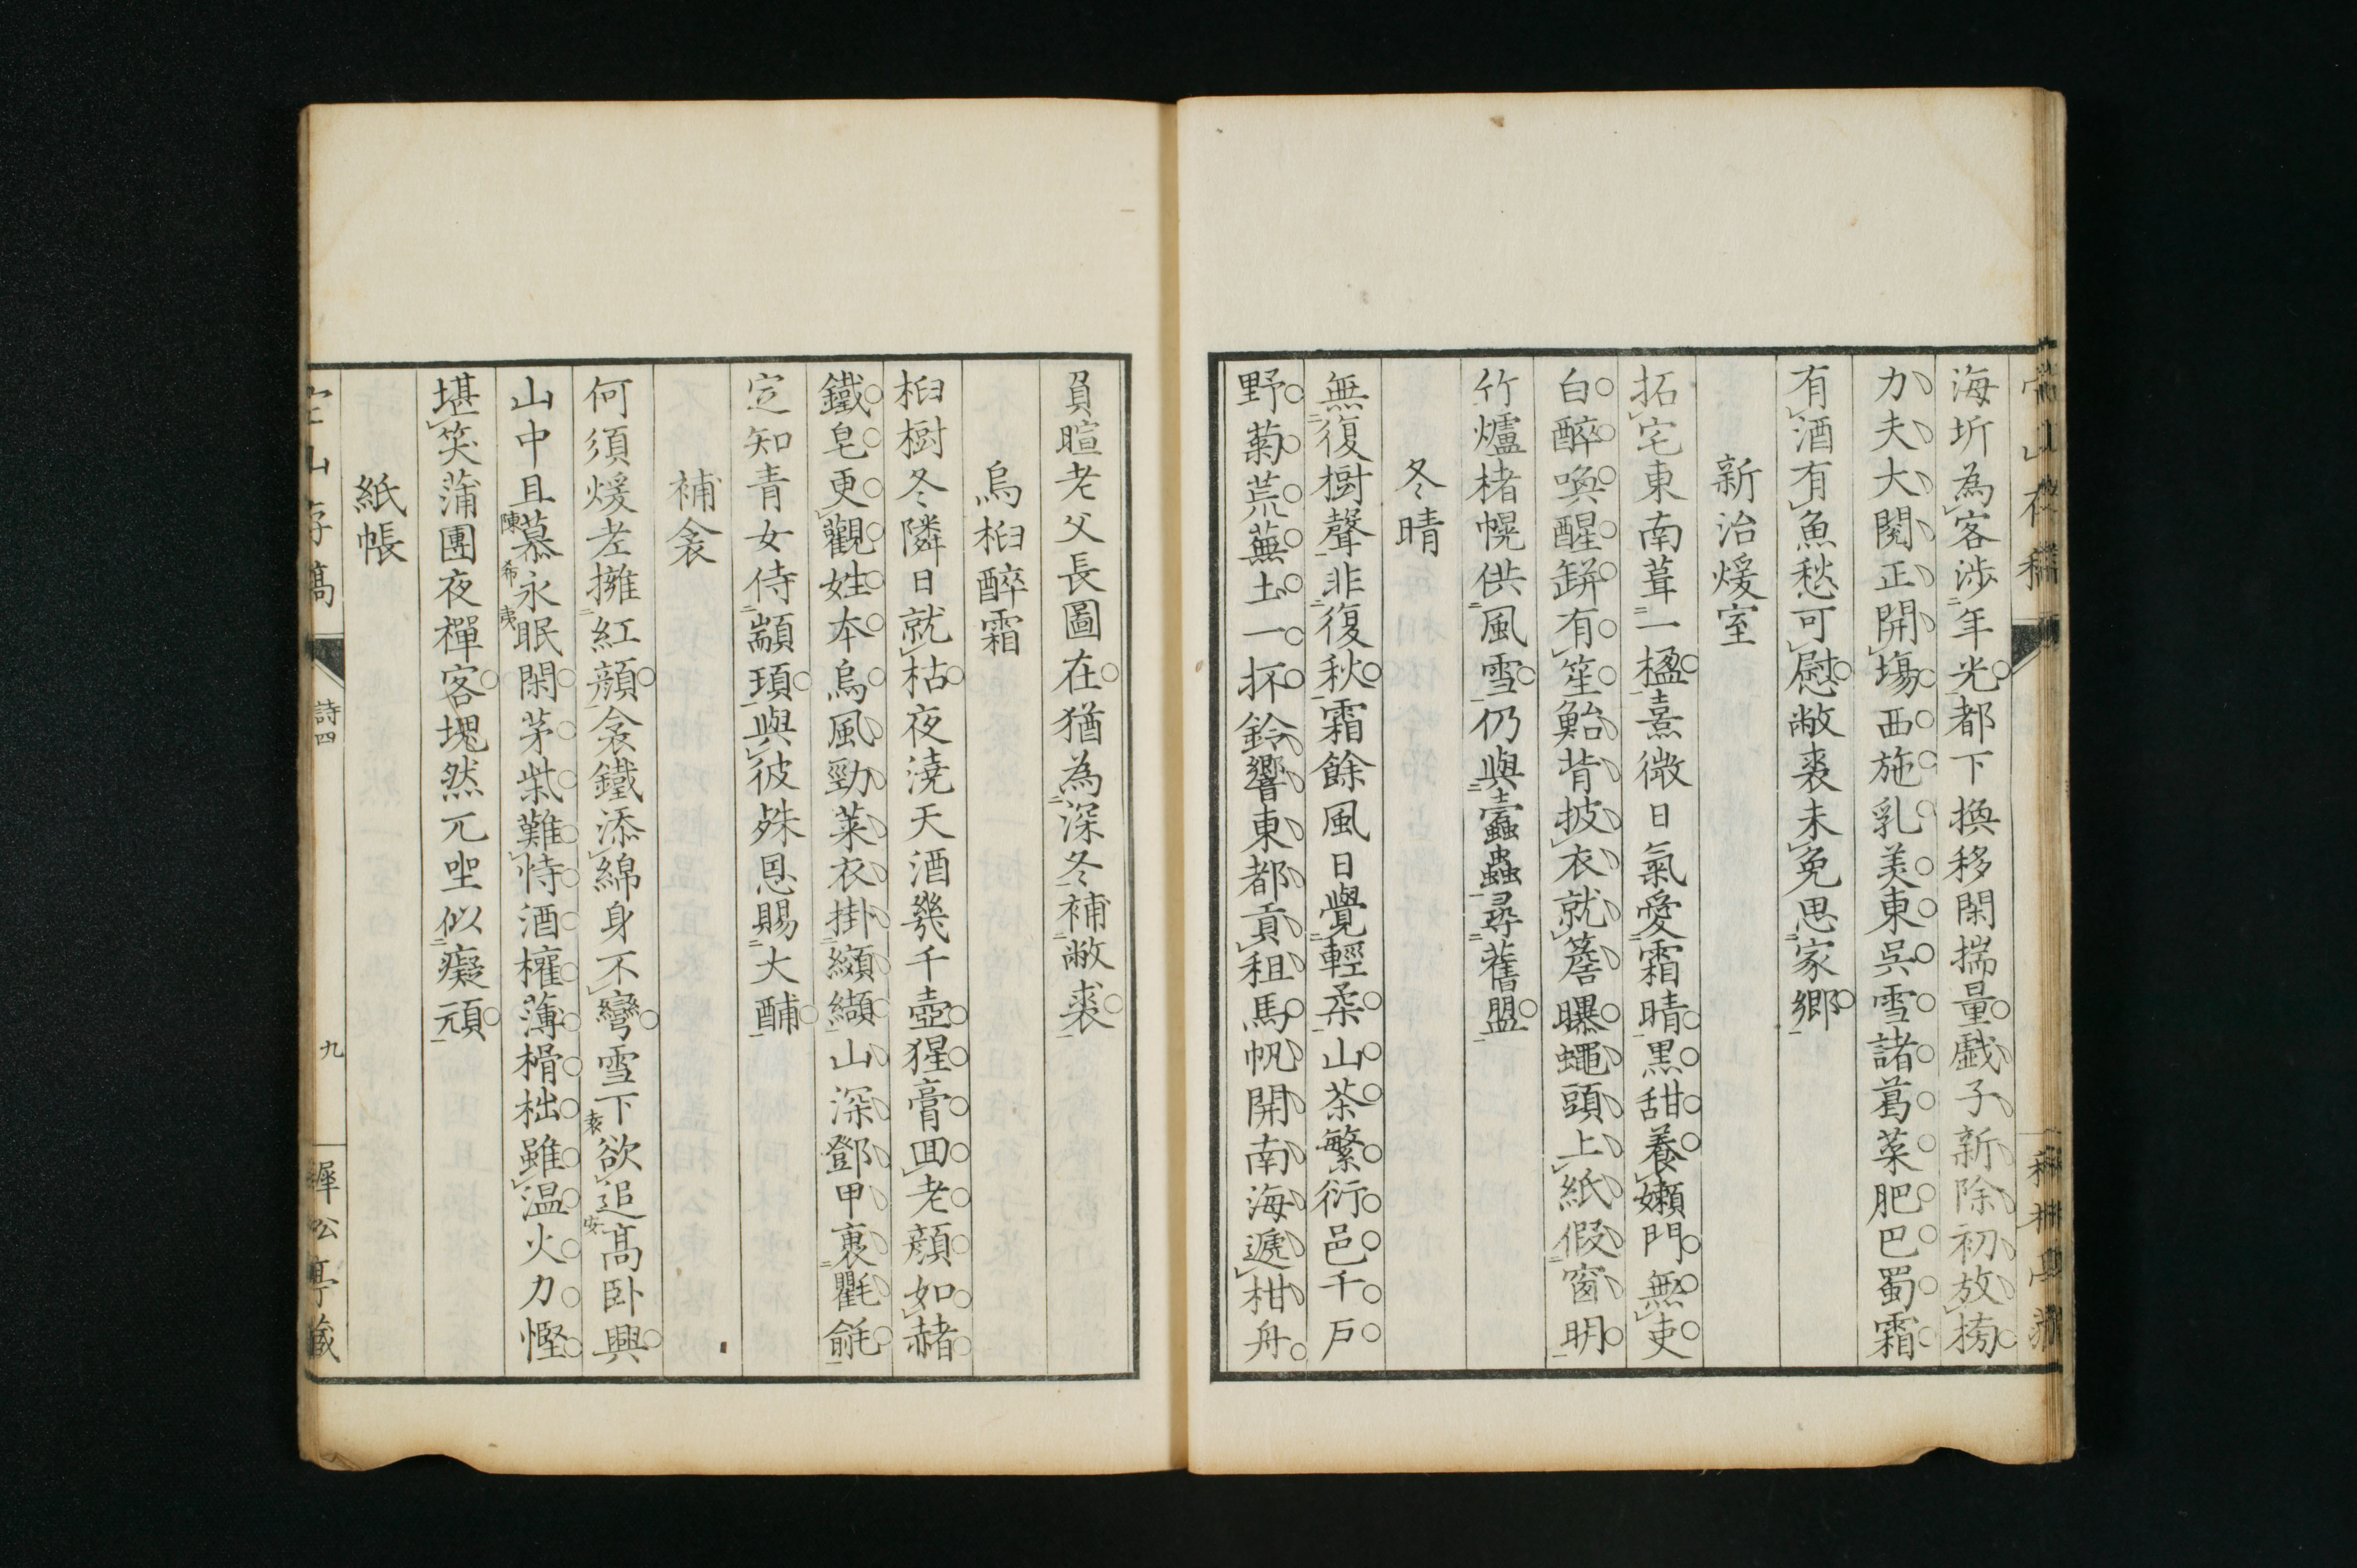 海圻為客涉年光都下換移閑揣量戲子新除初放榜
力夫大鬩正開場西施乳美東吳雪諸葛菜肥巴蜀霜
有酒有魚愁可慰敝裘未免思家鄉
新治煖室
拓宅東南葺一楹熹微日氣愛霜晴黒甜養嬾門無吏
白醉喚醒缾有笙鮐背披衣就簷曝蠅頭上紙假窗明
竹爐楮幌供風雪仍與蠹蟲尋舊盟
冬晴
無復樹聲非復秋霜餘風日覺輕柔山茶繁衍邑千戶
野菊荒蕪土一抔鈴響東都貢租馬帆開南海遞柑舟
負暄老父長圖在猶為深冬補敝裘
烏桕醉霜
桕樹冬隣日就枯夜澆天酒幾千壺猩膏回老顏如赭
鐵皂更觀姓本烏風勁萊衣掛纈纈山深鄧甲裹氍毹
定知青女侍顓頊與彼殊恩賜大酺
補衾
何須煖老擁紅顏衾鐵添綿身不彎雪下欲追高臥興
袁安
山中且慕永眠閑茅柴難恃酒權薄榾柮雖温火力慳
陳希夷
堪笑蒲團夜禪客塊然兀坐似癡頑
紙帳
詩四
九